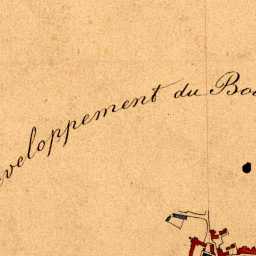 veloppement du Bo